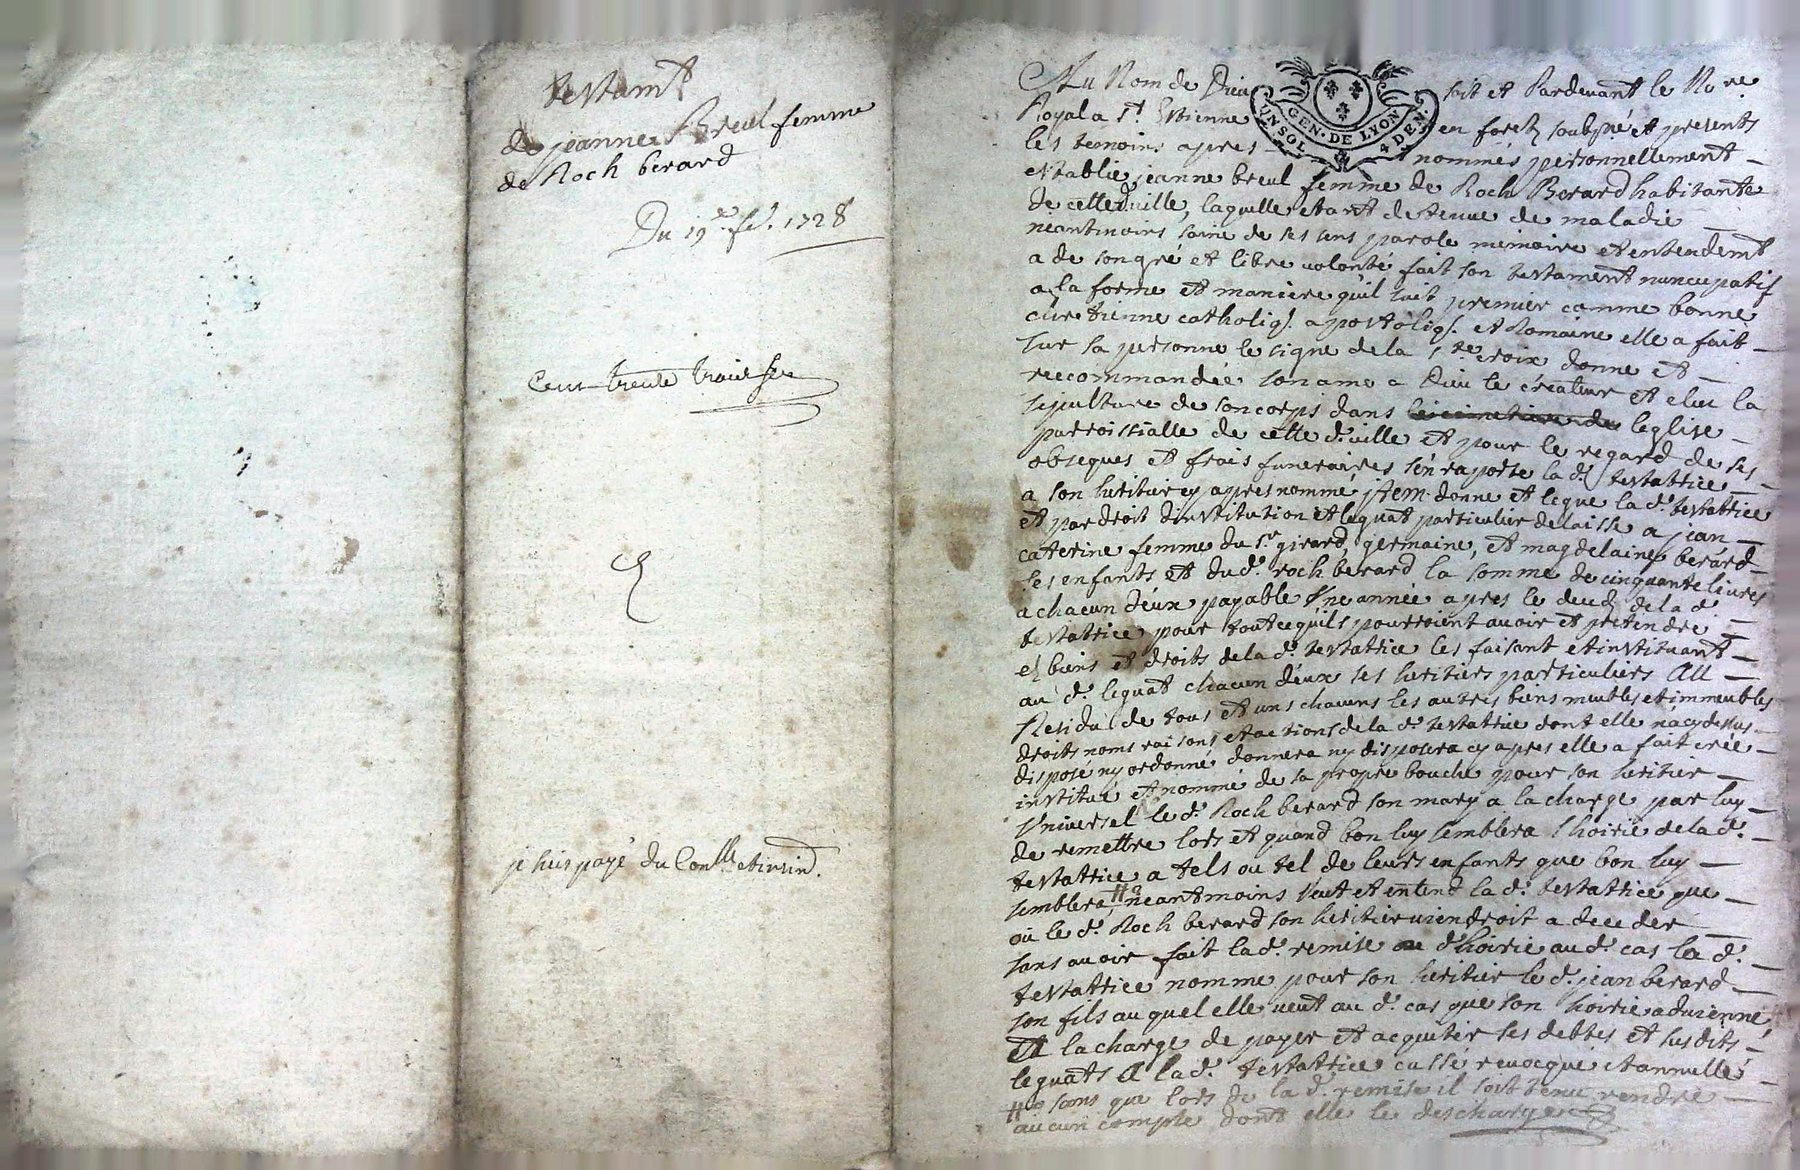 testamt
de jeanne Breul femme
de Roch berard
Du 19e fe. 1728
Cent trente trois
je suis payé du Conlle et insin.
Au Nom de Dieu soit et Pardevant le No.re
Royal a St Estienne en forest soubné et presents
les temoins apres nommés personnellement
establie jeanne breul femme de Roch Berard habitante
de cette d. ville, laquelle etant detenue de maladie
néantmoins saine de ses sens parole memoire et entendemt
a de son gré et libre volonté fait son testament nuncupatif
a la forme et maniere quil suit premier comme bonne
chretienne catholiq. apostoliq. et Romaine elle a fait
sur sa personne le signe de la ste croix donné et
reccommandée son ame a Dieu le créateur et elue la
sepulture de son corps dans leglise
parroissialle de cette d. ville et pour le regard de ses
obseques et frais funeraires sen raporte la d. testattrice
a son heritier cy apres nommé jtem donne et legue la d. testattrice
et par droit dinstitution et lequat particulier delaisse a jean
caterine femme du sr girard, germaine, et magdelaine berard
ses enfants et du d. roch berard la somme de cinquante livres
a chacun deux payable Une année apres le decez de la d.
testattrice pour tout ce quils pourroient avoir et pretendre
ez biens et droits de la d. testattrice les faisant et instituant
au d. lequat chacun deux ses heritiers particuliers All
Residu de tous et uns chacuns les autres biens meubles et immeubles
droits noms raisons et actions de la d. testattrice dont elle na cy dessus
disposé ny ordonné donnera ny disposera cy apres elle a fait créé
institué et nommé de sa propre bouche pour son heritier
Vniversel le d. Roch berard son mary a la charge par luy
de remettre lors et quand bon luy semblera lhoirie de la d.
testattrice a tels ou tel de leurs enfants que bon luy
semblera, # néantmoins Veut et entend la d. testattrice que
où le d. Roch berard son heritier viendroit a deceder
sans avoir fait la d. remise dhoirie au d. cas la d.
testattrice nomme pour son heritier le d. jean berard
son fils auquel elle veut au d. cas que son hoirie advienne
Et la charge de payer et acquiter ses debtes et susdits
lequats Et la d. testattrice cassé revocqué et annullé
# sans que lors de la d. remise il soit tenu rendre
aucun compte dont elle le descharge
UN SOL GEN. DE LYON 4 DEN.